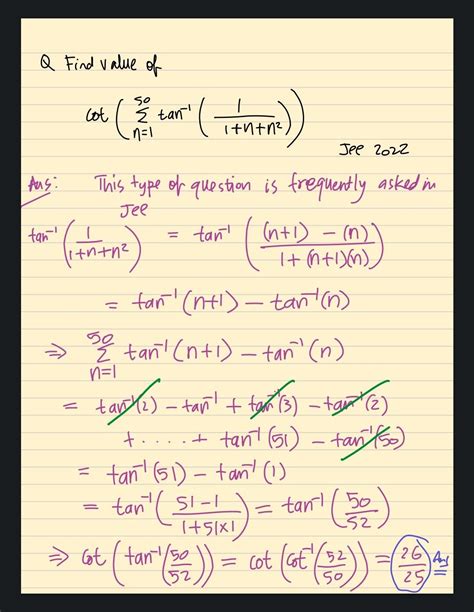 Q Find value of
cot ( 50 Σ n=1 tan⁻¹ ( 1 / 1+n+n² ) )
Jee 2022
Ans: This type of question is frequently asked in
Jee
tan⁻¹ ( 1 / 1+n+n² ) = tan⁻¹ ( (n+1) − (n) / 1+(n+1)(n) )
= tan⁻¹(n+1) − tan⁻¹(n)
⇒ 50 Σ n=1 tan⁻¹(n+1) − tan⁻¹(n)
= tan⁻¹(2) − tan⁻¹ + tan⁻¹(3) − tan⁻¹(2)
+ ..... + tan⁻¹(51) − tan⁻¹(50)
= tan⁻¹(51) − tan⁻¹(1)
= tan⁻¹( 51−1 / 1+51×1 ) = tan⁻¹( 50 / 52 )
⇒ cot ( tan⁻¹( 50 / 52 ) ) = cot ( cot⁻¹( 52 / 50 ) ) = ( 26 / 25 ) Ans